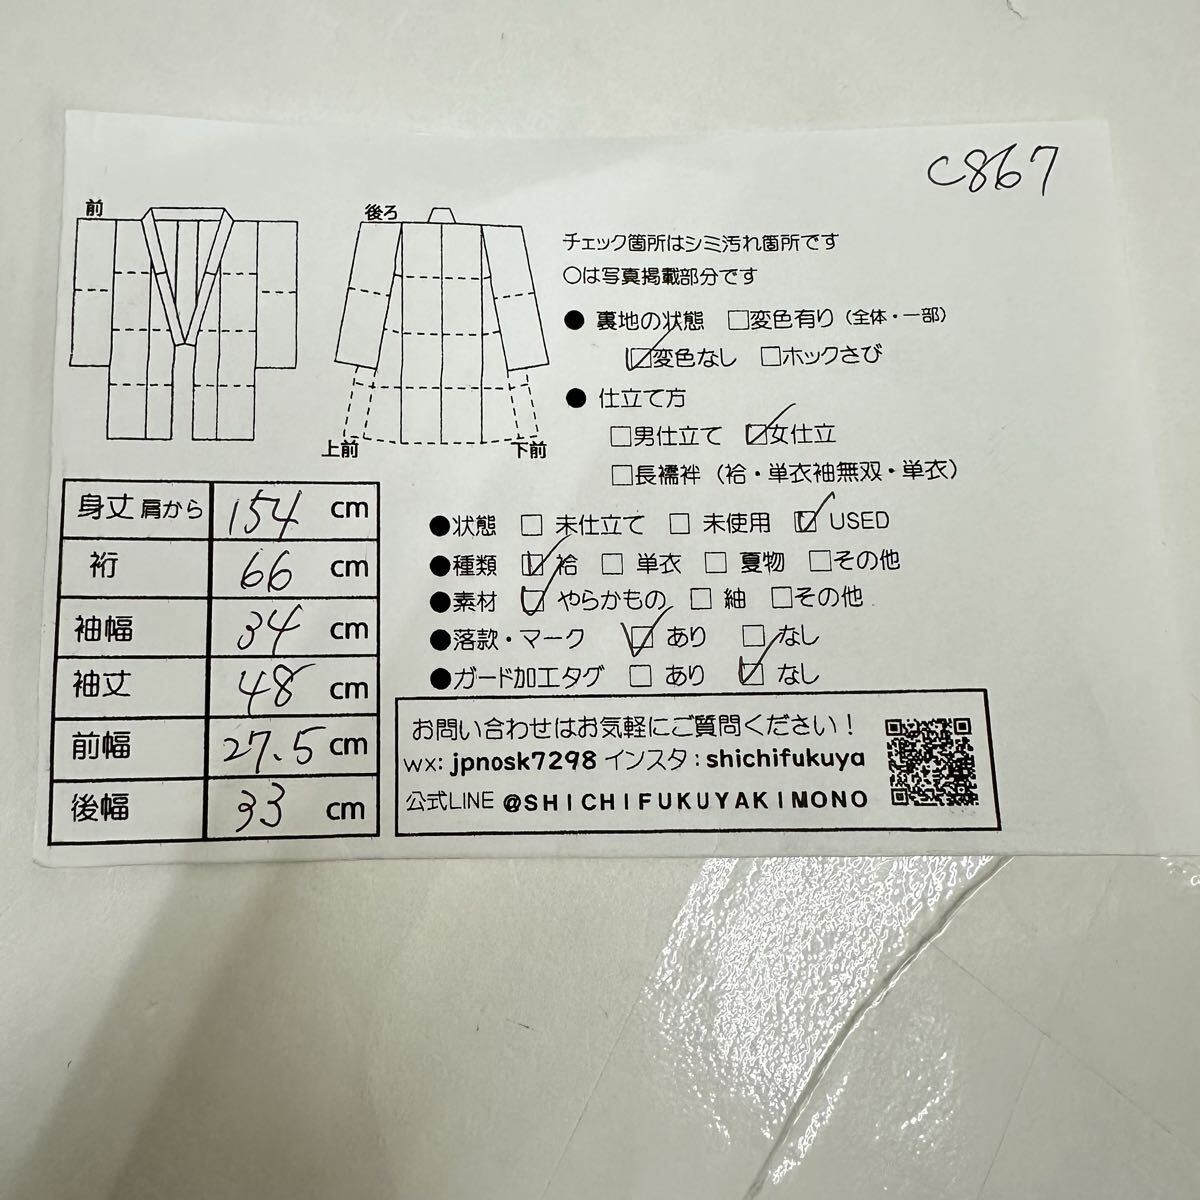 C867
前
後ろ
上前
下前
チェック箇所はシミ汚れ箇所です
○は写真掲載部分です
● 裏地の状態 □変色有り（全体・一部）
☑変色なし □ホックさび
● 仕立て方
□男仕立て ☑女仕立
□長襦袢（袷・単衣袖無双・単衣）
●状態 □ 未仕立て □ 未使用 ☑ USED
●種類 ☑ 袷 □ 単衣 □ 夏物 □その他
●素材 ☑ やらかもの □ 紬 □その他
●落款・マーク ☑ あり □ なし
●ガード加工タグ □ あり ☑ なし
身丈 肩から 154 cm
裄 66 cm
袖幅 34 cm
袖丈 48 cm
前幅 27.5 cm
後幅 33 cm
お問い合わせはお気軽にご質問ください！
wx: jpnosk7298 インスタ：shichifukuya
公式LINE @SHICHIFUKUYAKIMONO